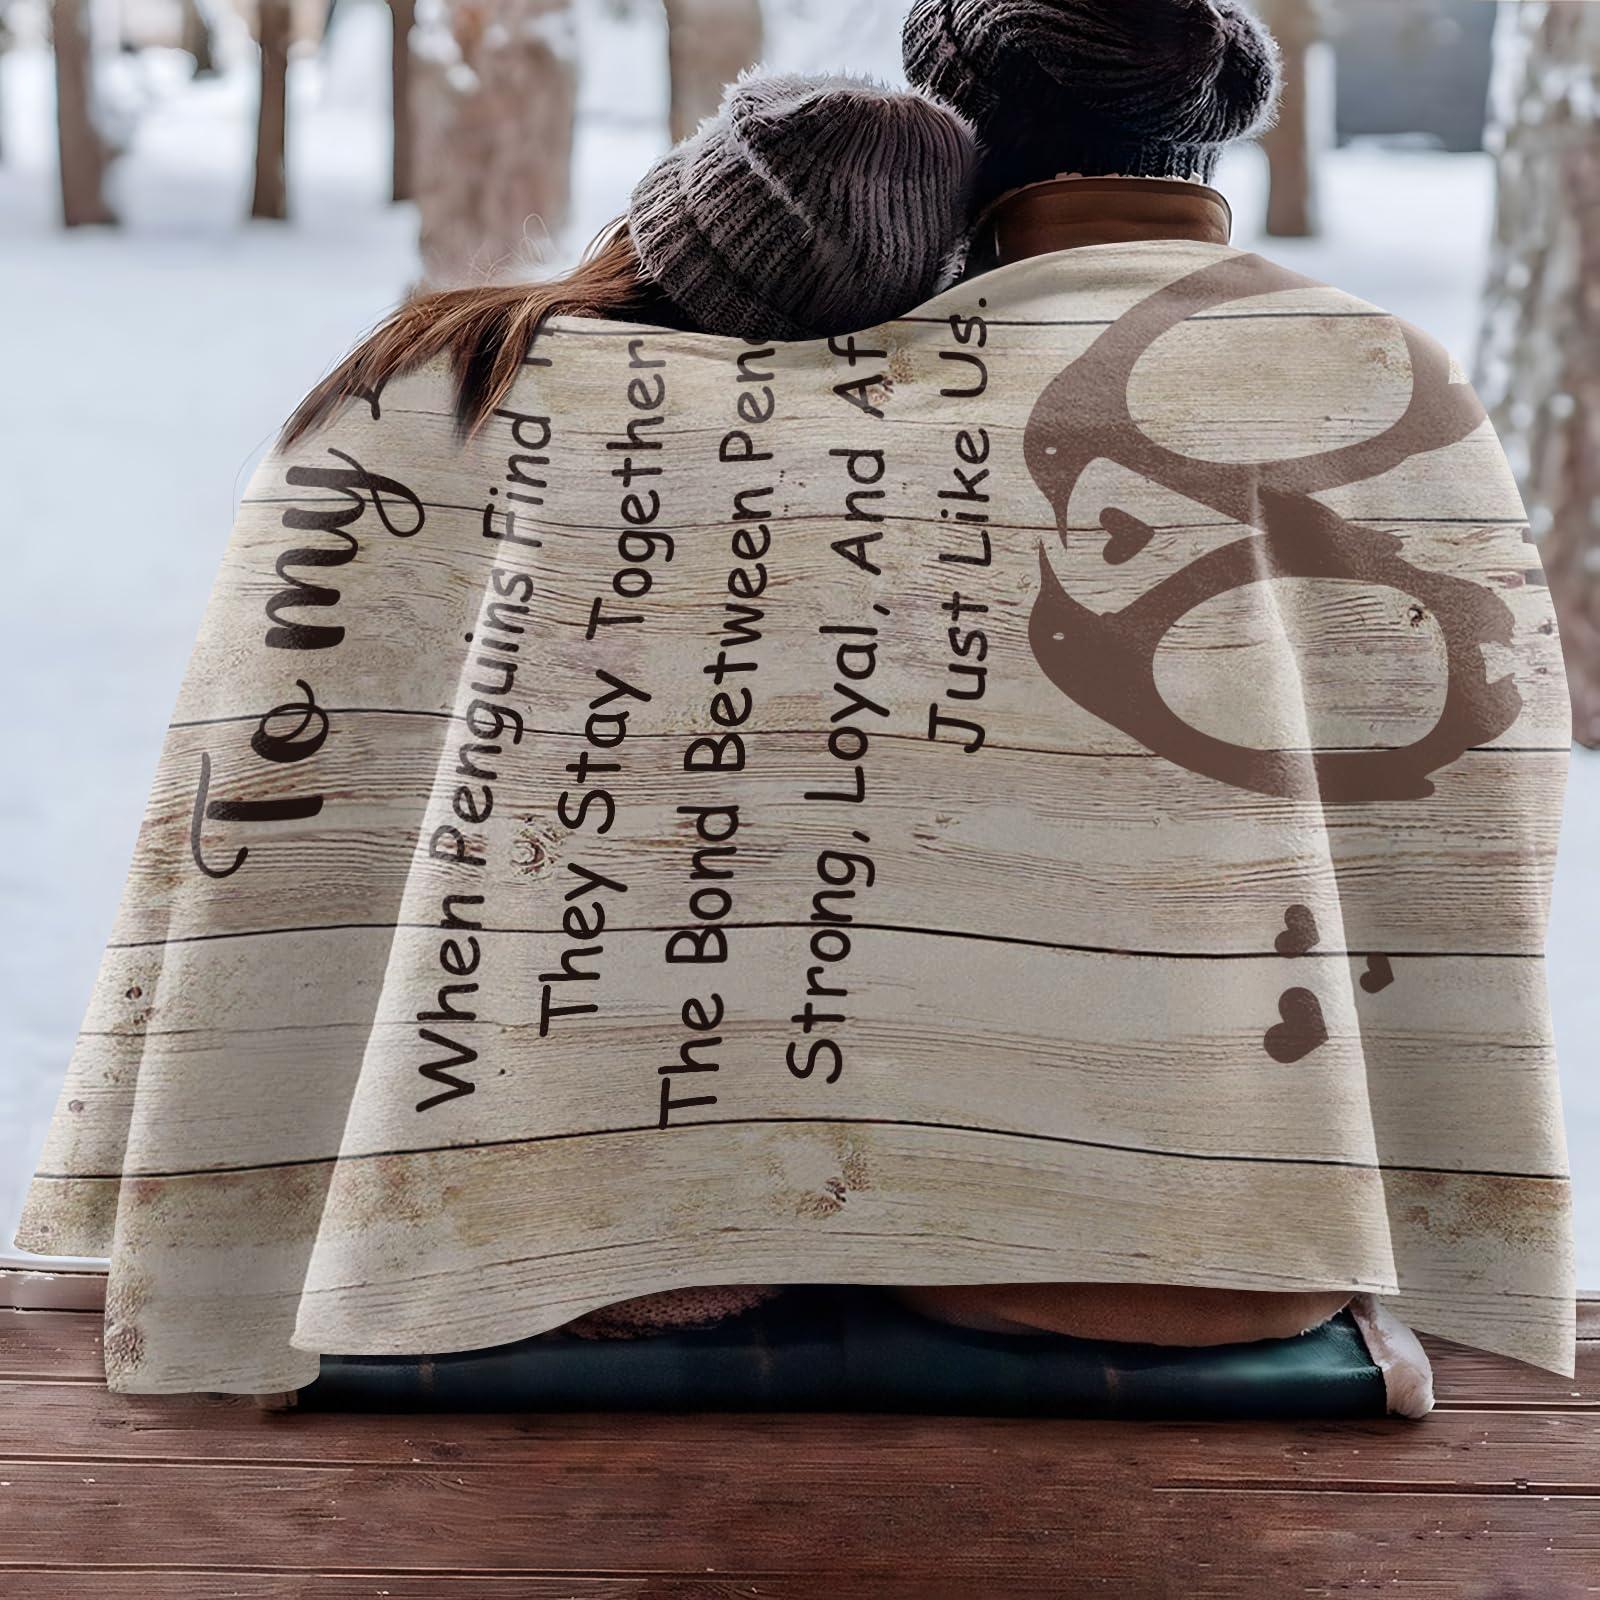 To my
When Penguins Find
They Stay Together
The Bond Between
Strong, Loyal, And
Just Like Us.